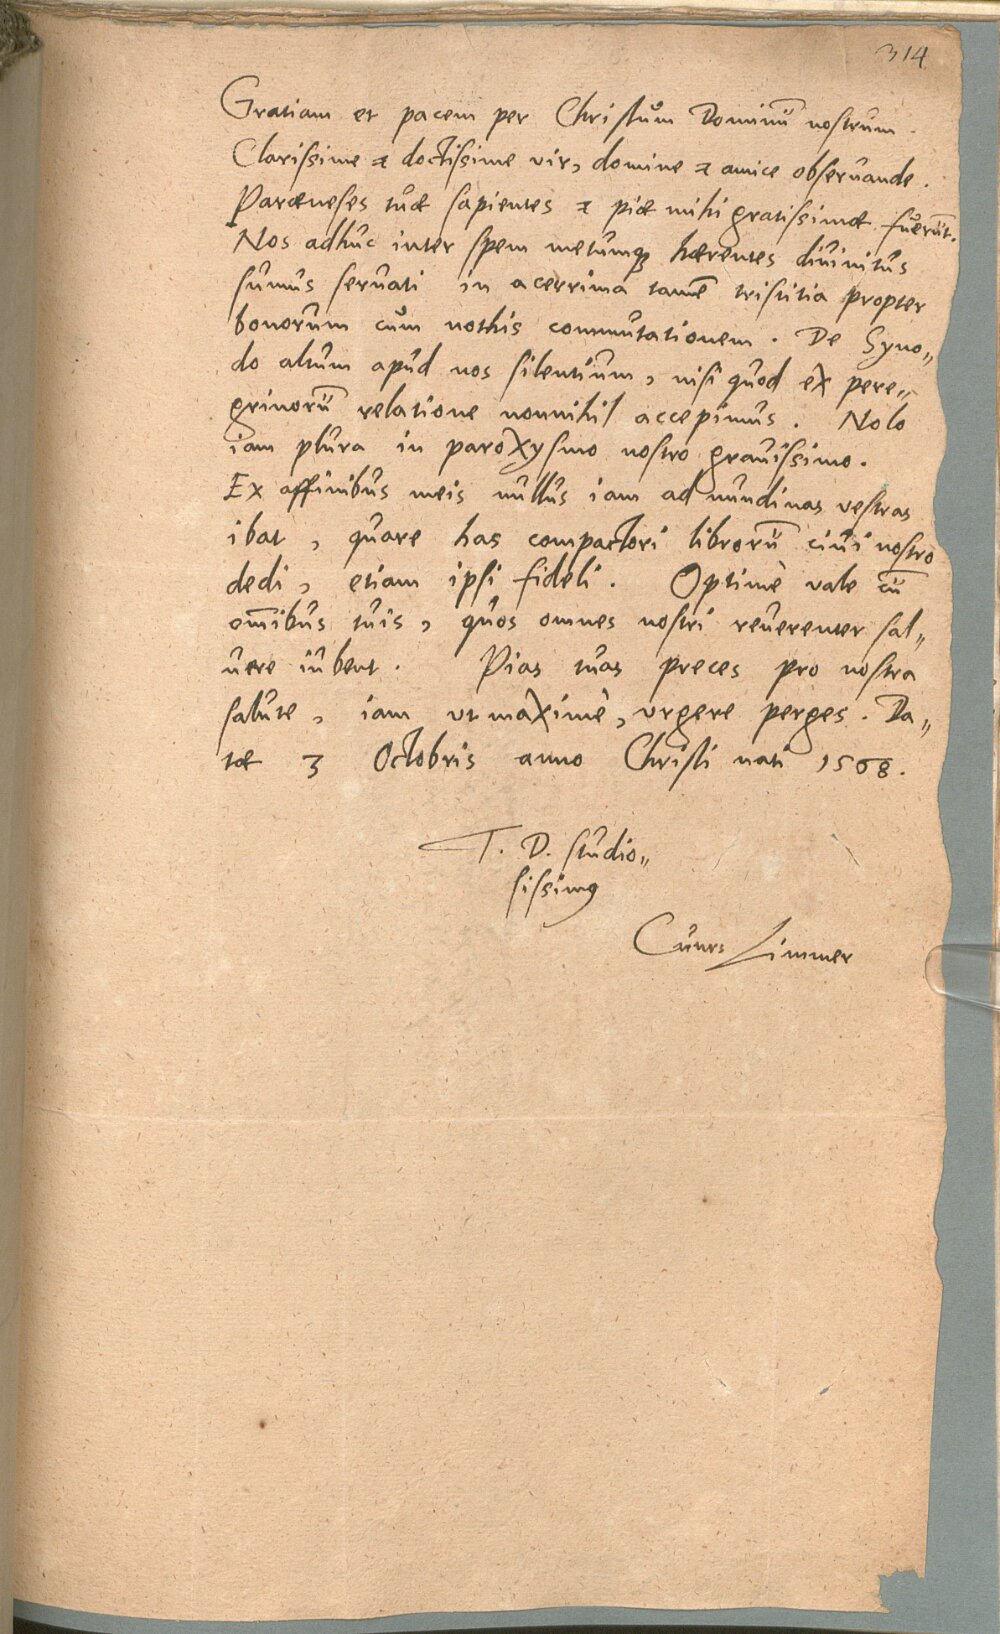 314
Gratiam et pacem per Christum Dominū nostrum.
Clarissime & doctissime vir, domine & amice obseruande.
Paræneses tuæ sapientes & piæ mihi gratissimæ fuerūt.
Nos adhuc inter spem metumq3 hærentes diuinitus
sumus seruati in acerrima tamē tristitia propter
bonorum cum nothis commutationem. De Syno„
do altum apud nos silentium, nisi quod ex pere„
grinorū relatione nonnihil accepimus. Nolo
iam plura in paroxysmo nostro grauissimo.
Ex affinibus meis nullus iam ad nundinas vestras
ibat, quare has compactori librorū ciui nostro
dedi, etiam ipsi fideli. Optimè vale cū
om̄ibus tuis, quos omnes nostri reuerenter sal„
uere iubent. Pias tuas preces pro nostra
salute, iam vt maximè, vrgere perges. Da„
tæ 3 Octobris anno Christi nati 1568.
T. D. studio„
sissimꝰ
Cunr: Limmer